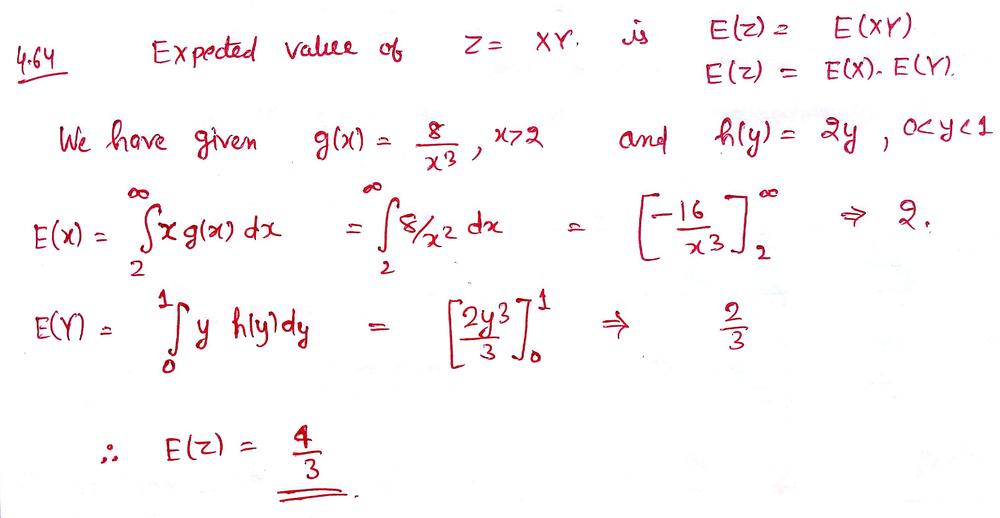 4.64 Expected value of Z = XY. is E(Z) = E(XY)
E(Z) = E(X). E(Y).
We have given g(x) = 8/x³, x>2 and h(y) = 2y, 0<y<1
E(x) = ∫₂^∞ x g(x) dx = ∫₂^∞ 8/x² dx = [-16/x³]₂^∞ ⇒ 2.
E(Y) = ∫₀¹ y h(y) dy = [2y³/3]₀¹ ⇒ 2/3
∴ E(Z) = 4/3.